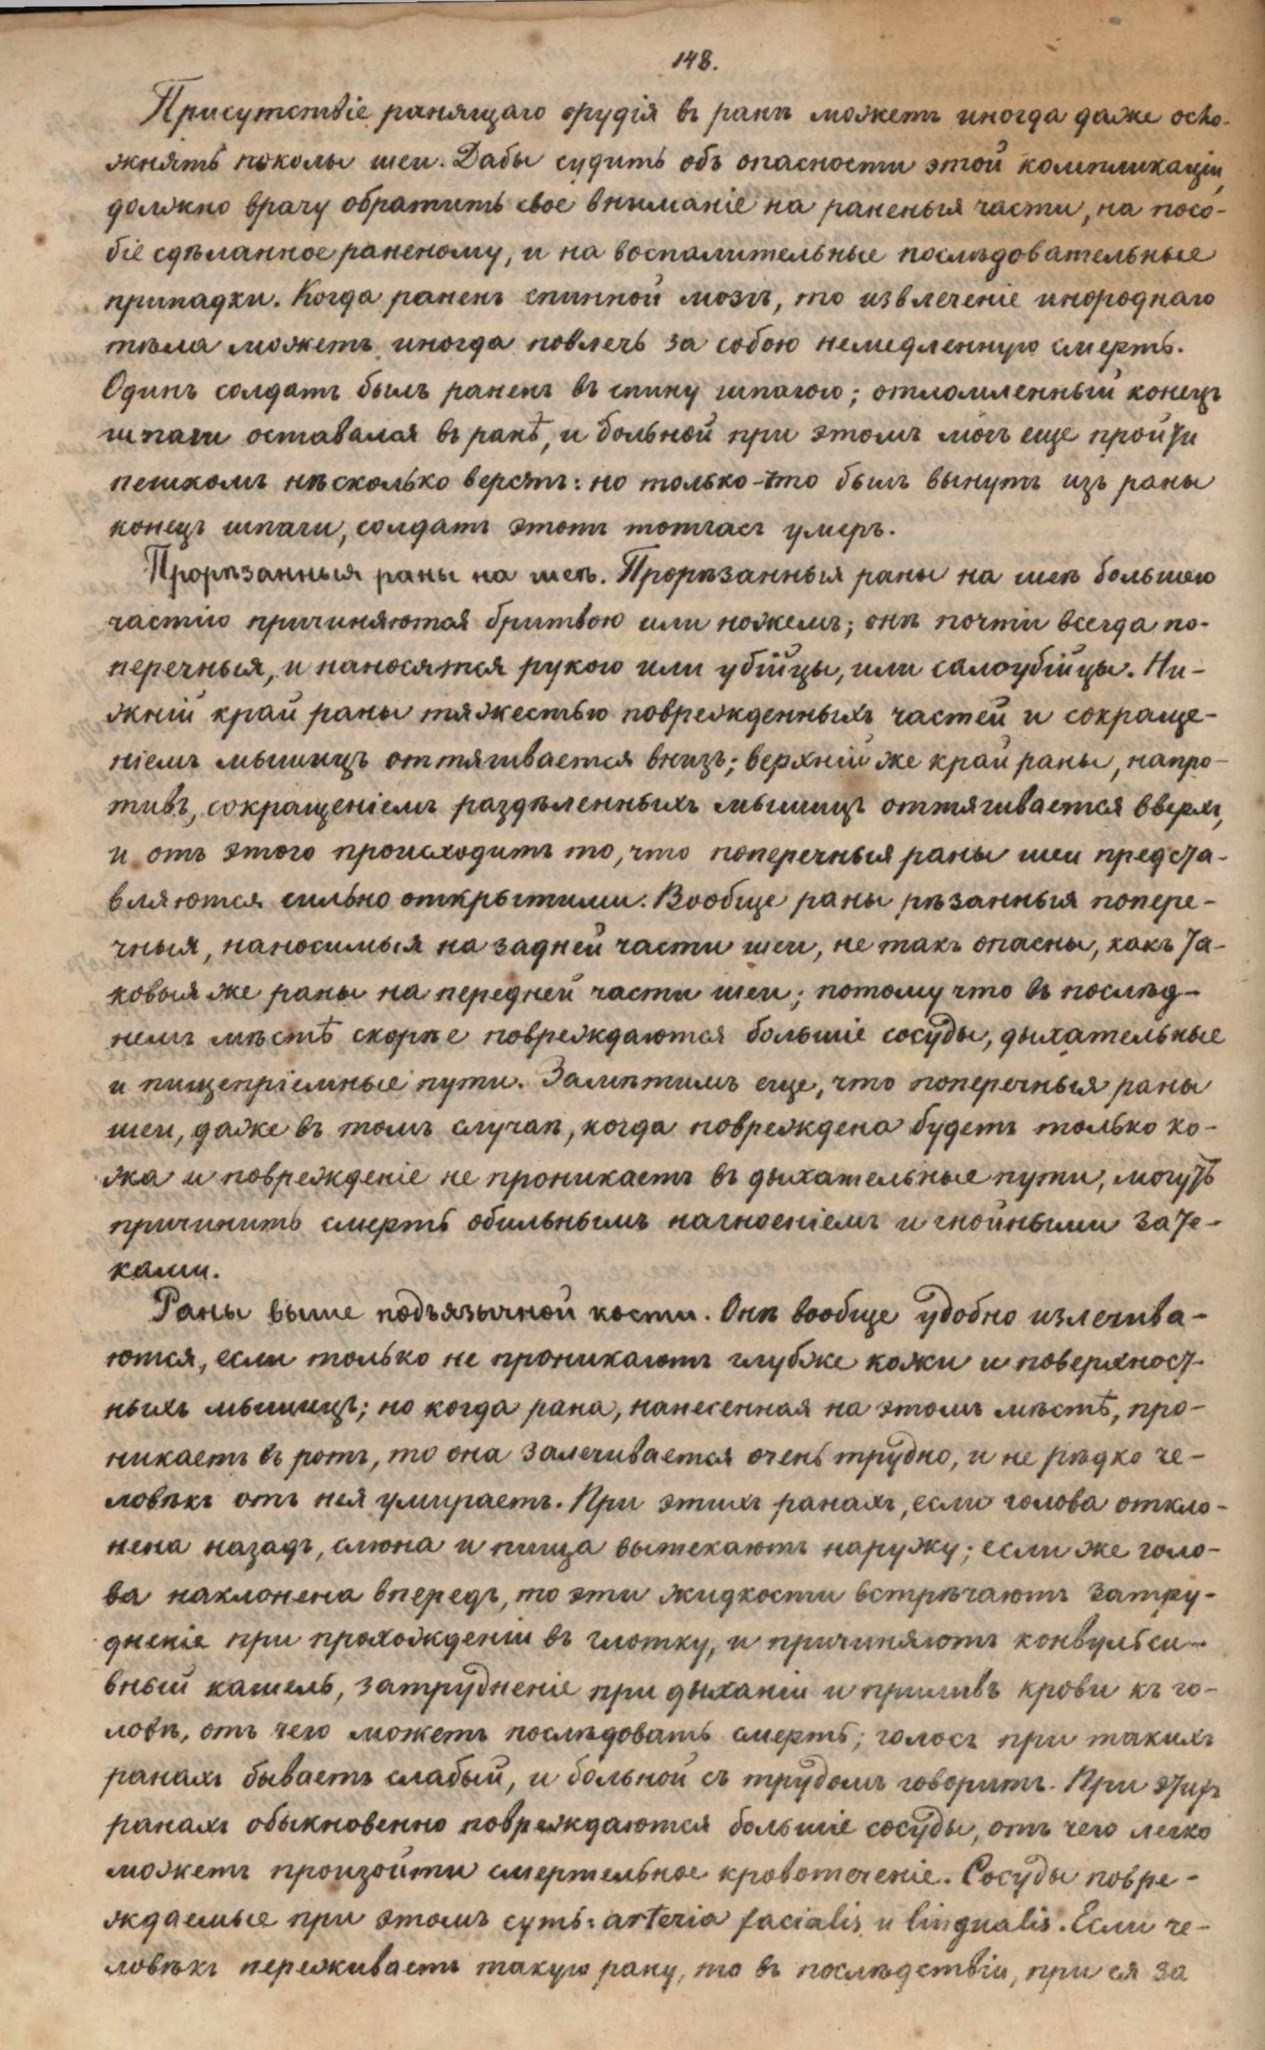 148.
Присутствіе ранящаго орудія въ ранѣ можетъ иногда даже осло-
жнять поколы шеи. Дабы судить объ опасности этой компликаціи,
должно врачу обратить свое вниманіе на раненыя части, на посо-
біе сдѣланное раненому, и на воспалительные послѣдовательные
припадки. Когда раненъ спинной мозгъ, то извлеченіе инороднаго
тѣла можетъ иногда повлечь за собою немедленную смерть.
Одинъ солдатъ былъ раненъ въ спину шпагою; отломленный конецъ
шпаги оставался въ ранѣ, и больной при этомъ могъ еще пройти
пешкомъ нѣсколько верстъ: но только-что былъ вынутъ изъ раны
конецъ шпаги, солдатъ этотъ тотчасъ умеръ.
Прорѣзанныя раны на шеѣ. Прорѣзанныя раны на шеѣ большею
частію причиняются бритвою или ножемъ; онѣ почти всегда по-
перечныя, и наносятся рукою или убійцы, или самоубійцы. Ни-
жній край раны тяжестью поврежденныхъ частей и сокраще-
ніемъ мышицъ оттягивается внизъ; верхній же край раны, напро-
тивъ, сокращеніемъ раздѣленныхъ мышицъ оттягивается вверхъ,
и отъ этого происходитъ то, что поперечныя раны шеи предста-
вляются сильно открытыми. Вообще раны рѣзанныя попере-
чныя, наносимыя на задней части шеи, не такъ опасны, какъ та-
ковыя же раны на передней части шеи; потому что въ послѣд-
немъ мѣстѣ скорѣе повреждаются большіе сосуды, дыхательные
и пищепріемные пути. Замѣтимъ еще, что поперечныя раны
шеи, даже въ томъ случаѣ, когда повреждена будетъ только ко-
жа и поврежденіе не проникаетъ въ дыхательные пути, могутъ
причинить смерть обильнымъ нагноеніемъ и гнойными зате-
ками.
Раны выше подъязычной кости. Онѣ вообще удобно излечива-
ются, если только не проникаютъ глубже кожи и поверхност-
ныхъ мышицъ; но когда рана, нанесенная на этомъ мѣстѣ, про-
никаетъ въ ротъ, то она залечивается очень трудно, и не рѣдко че-
ловѣкъ отъ нея умираетъ. При этихъ ранахъ, если голова откло-
нена назадъ, слюна и пища вытекаютъ наружу; если же голо-
ва наклонена впередъ, то эти жидкости встрѣчаютъ затру-
дненіе при прохожденіи въ глотку, и причиняютъ конвульси-
вный кашель, затрудненіе при дыханіи и приливъ крови къ го-
ловѣ, отъ чего можетъ послѣдовать смерть; голосъ при такихъ
ранахъ бываетъ слабый, и больной съ трудомъ говоритъ. При этихъ
ранахъ обыкновенно повреждаются большіе сосуды, отъ чего легко
можетъ произойти смертельное кровотеченіе. Сосуды повре-
ждаемые при этомъ суть: arteria facialis и lingualis. Если че-
ловѣкъ переживаетъ такую рану, то въ послѣдствіи, при ея за